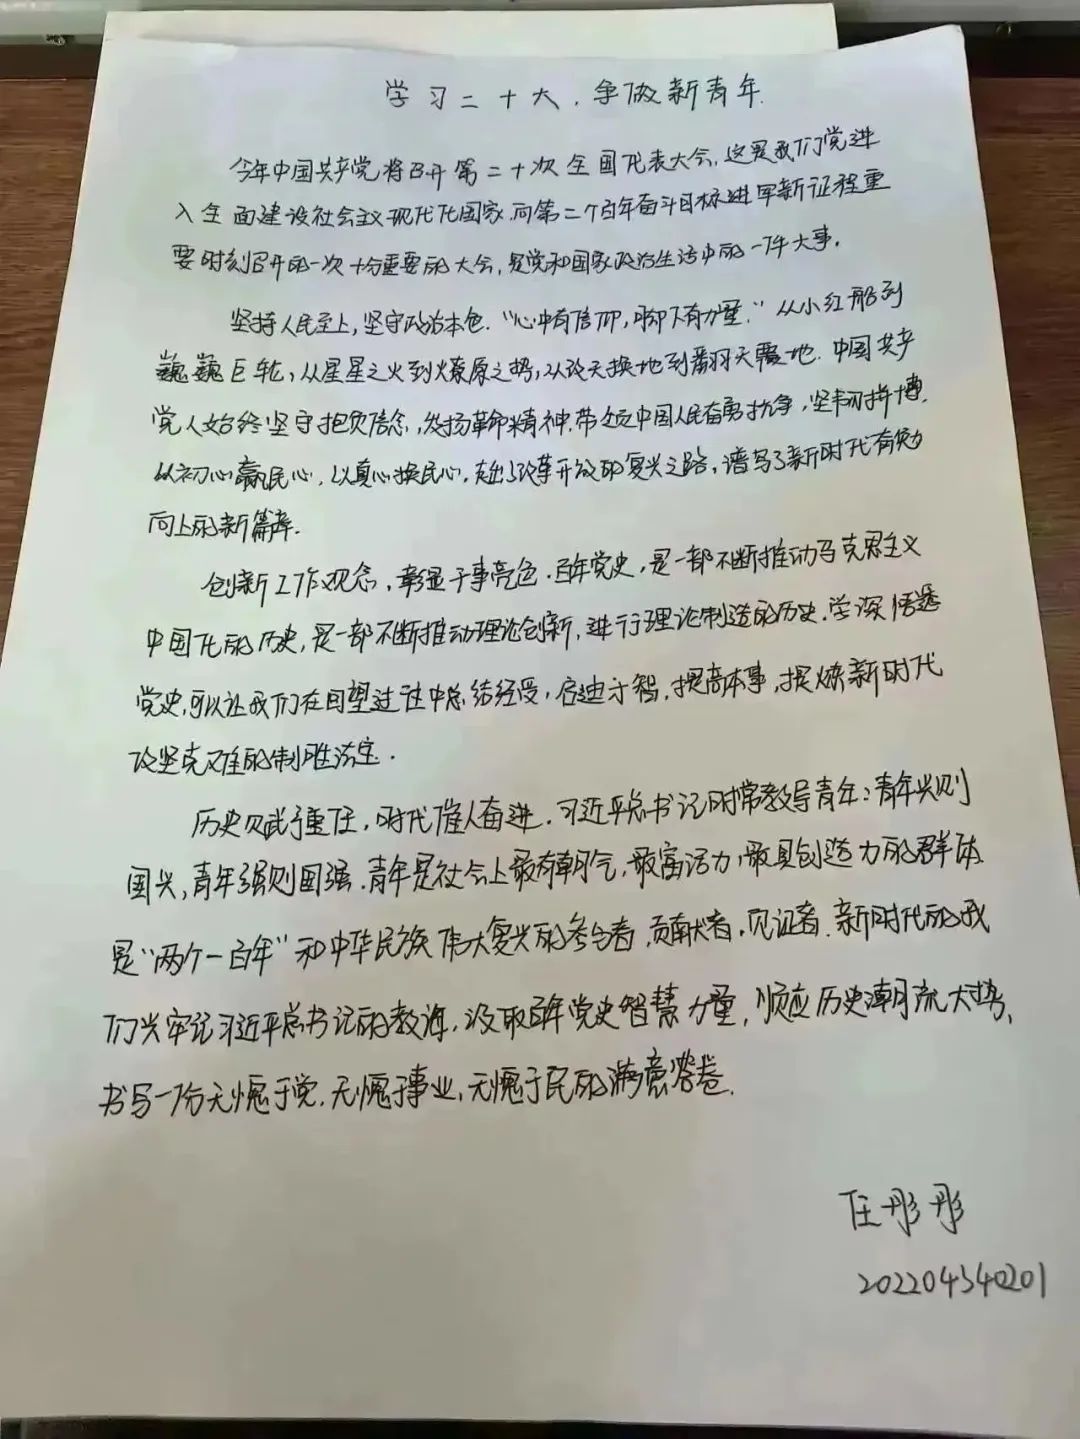 学习二十大,争做新青年.
今年中国共产党将召开第二十次全国代表大会,这是我们党进
入全面建设社会主义现代化国家,向第二个百年奋斗目标进军新征程重
要时刻召开的一次十分重要的大会,是党和国家政治生活中的一件大事.
坚持人民至上,坚守政治本色.“心中有信仰,脚下有力量.”从小红船到
巍巍巨轮,从星星之火到燎原之势,从改天换地到翻天覆地.中国共产
党人始终坚守抱负信念,发扬革命精神.带领中国人民奋勇抗争,坚韧拼搏.
以初心赢民心,以真心换民心,走出改革开放的复兴之路,谱写了新时代
向上的新篇章.
创新工作观念,彰显干事亮色.百年党史,是一部不断推动马克思主义
中国化的历史,是一部不断推动理论创新,进行理论制造的历史.学深悟透
党史,可以让我们在回望过往中总结经受,启迪才智,提高本事,提炼新时代
攻坚克难的制胜法宝.
历史赋予重任,时代催人奋进.习近平总书记时常教导青年:青年兴则
国兴,青年强则国强.青年是社会上最有朝气,最富活力,最具创造力的群体
是“两个一百年”和中华民族伟大复兴的参与者,贡献者,见证者.新时代的我
们当牢记习近平总书记的教诲,汲取百年党史智慧力量,顺应历史潮流大势,
书写一份无愧于党.无愧于事业,无愧于民的满意答卷.
任彤彤
202204340201